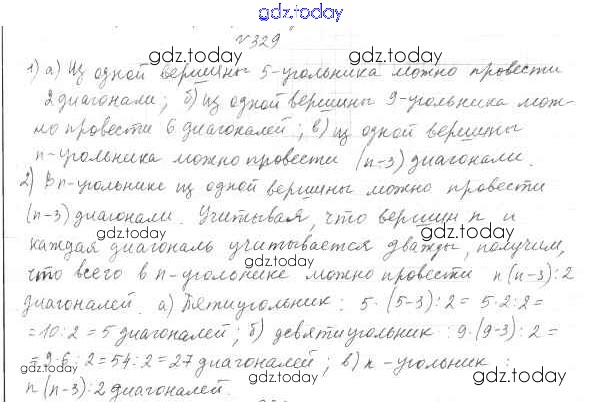 gdz.today
№329
gdz.today gdz.today
1) а) Из одной вершины 5-угольника можно провести
2 диагонали; б) из одной вершины 9-угольника мож-
но провести 6 диагоналей; в) из одной вершины
gdz.today gdz.today
n-угольника можно провести (n-3) диагонали.
2) В n-угольнике из одной вершины можно провести
gdz.today gdz.today
(n-3) диагонали. Учитывая, что вершин n и
каждая диагональ учитывается дважды, получим,
gdz.today gdz.today
что всего в n-угольнике можно провести n(n-3):2
диагоналей. а) Пятиугольник: 5·(5-3):2=5·2:2=
gdz.today gdz.today
=10:2=5 диагоналей; б) девятиугольник: 9·(9-3):2=
=9·6:2=54:2=27 диагоналей; в) n-угольник:
gdz.today gdz.today
n(n-3):2 диагоналей.
gdz.today